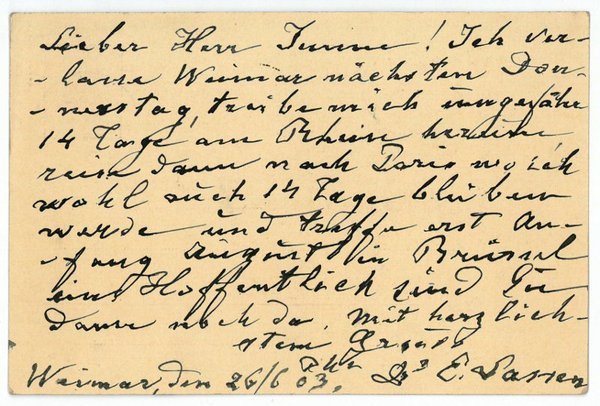 Lieber Herr Tunne! Ich ver-
-lasse Weimar nächsten Don-
-nerstag, treibe mich ungefähr
14 Tage am Rhein herum
reise dann nach Paris wo ich
wohl auch 14 Tage bleiben
werde und treffe erst An-
-fang August in Brüssel
ein. Hoffentlich sind Sie
dann noch da. Mit herzlich-
stem Gruss
Ihr
Weimar, den 26/6 03. Dr E. Lassen